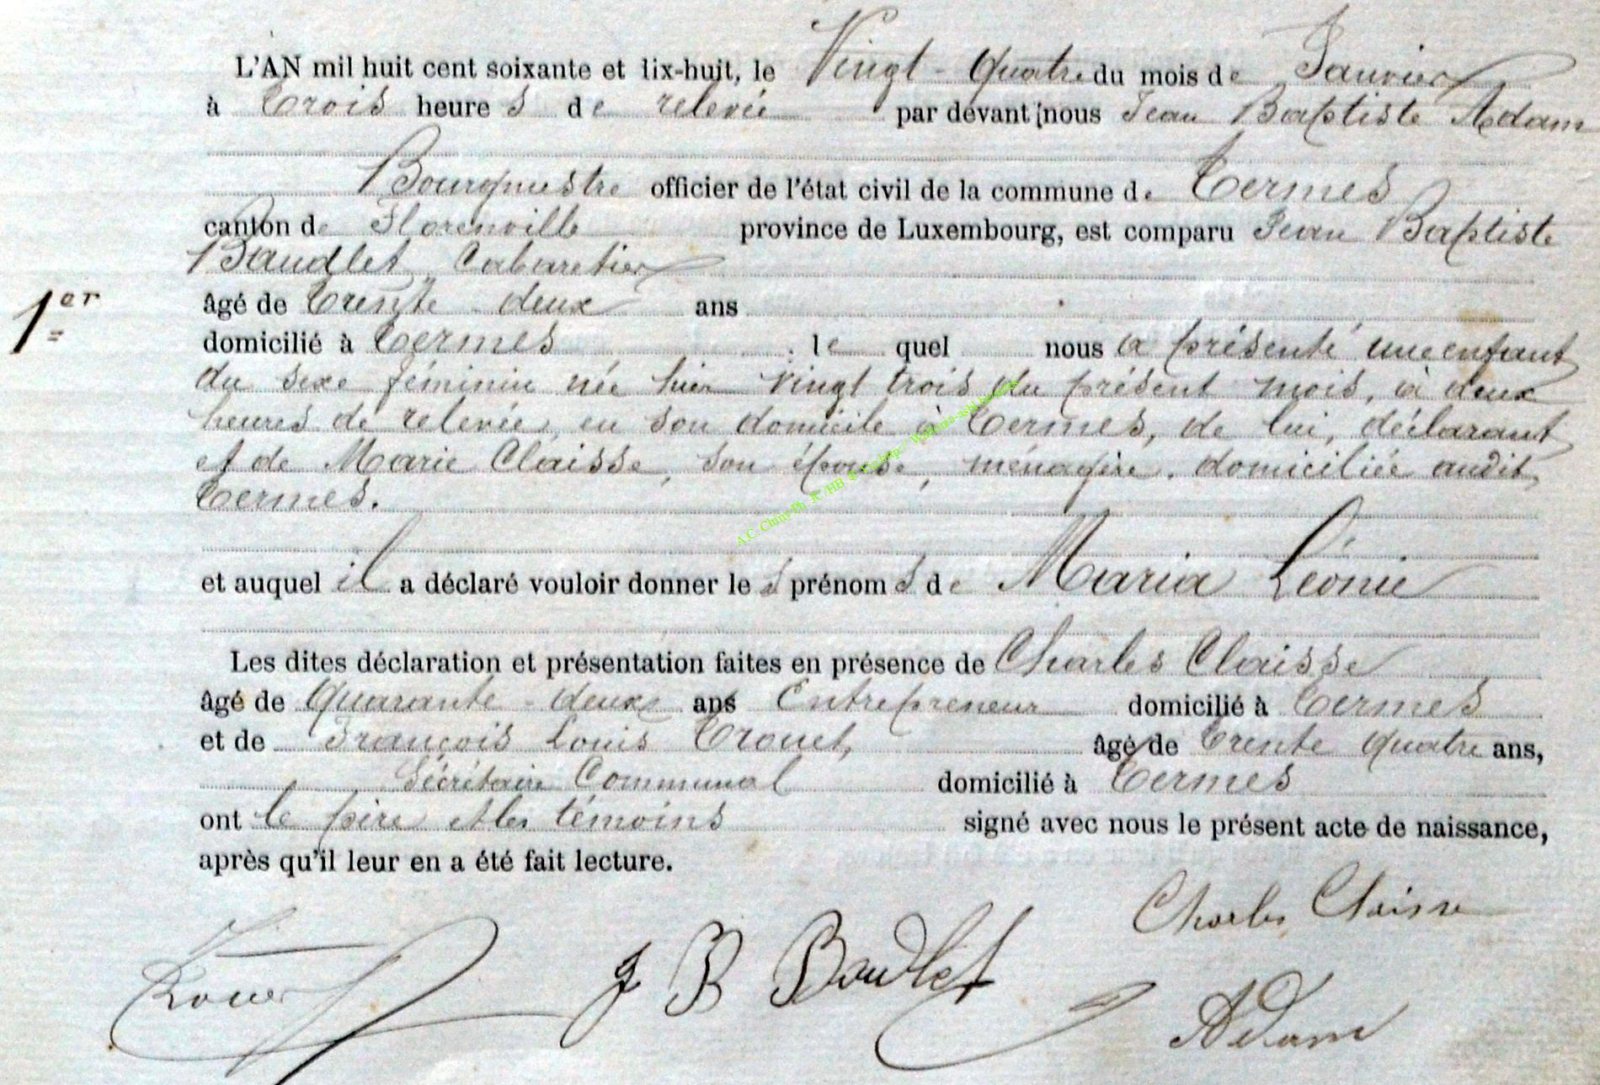 L'AN mil huit cent soixante et dix-huit, le Vingt-Quatre du mois de Janvier
à Trois heures de relevée par devant nous Jean Baptiste Adam
Bourgmestre officier de l'état civil de la commune de Termes
canton de Florenville province de Luxembourg, est comparu Jean Baptiste
Baudlet, Cabaretier
1er
âgé de Trente-deux ans
domicilié à Termes lequel nous a présenté une enfant
du sexe féminin née hier vingt trois du présent mois, à deux
heures de relevée, en son domicile à Termes, de lui, déclarant
et de Marie Claisse, son épouse, ménagère, domiciliée audit
Termes.
et auquel il a déclaré vouloir donner les prénoms de Maria Léonie
Les dites déclaration et présentation faites en présence de Charles Claisse
âgé de Quarante-deux ans Entrepreneur domicilié à Termes
et de François Louis Trouet, âgé de Trente quatre ans,
Sécrétaire Communal domicilié à Termes
ont le père et les témoins signé avec nous le présent acte de naissance,
après qu'il leur en a été fait lecture.
Charles Claisse
J B Baudlet
Adam